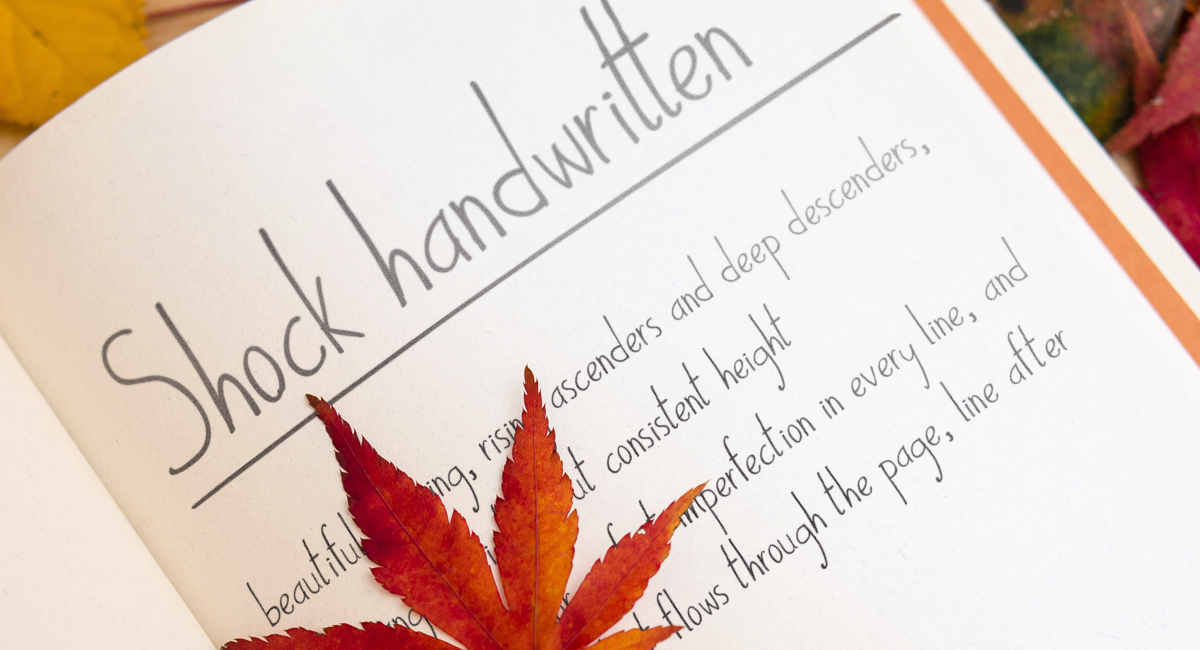 Shock handwritten
beautiful rising ascenders and deep descenders,
consistent height
imperfection in every line, and
flows through the page, line after